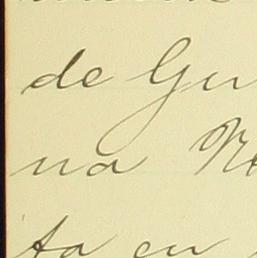 de Gu
na No
ta en